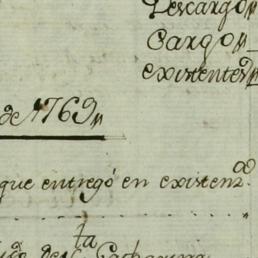 Descargo,,
Cargo,,
existentes,,
de 1769,,
que entregó en existen.ª
ta
Catharina